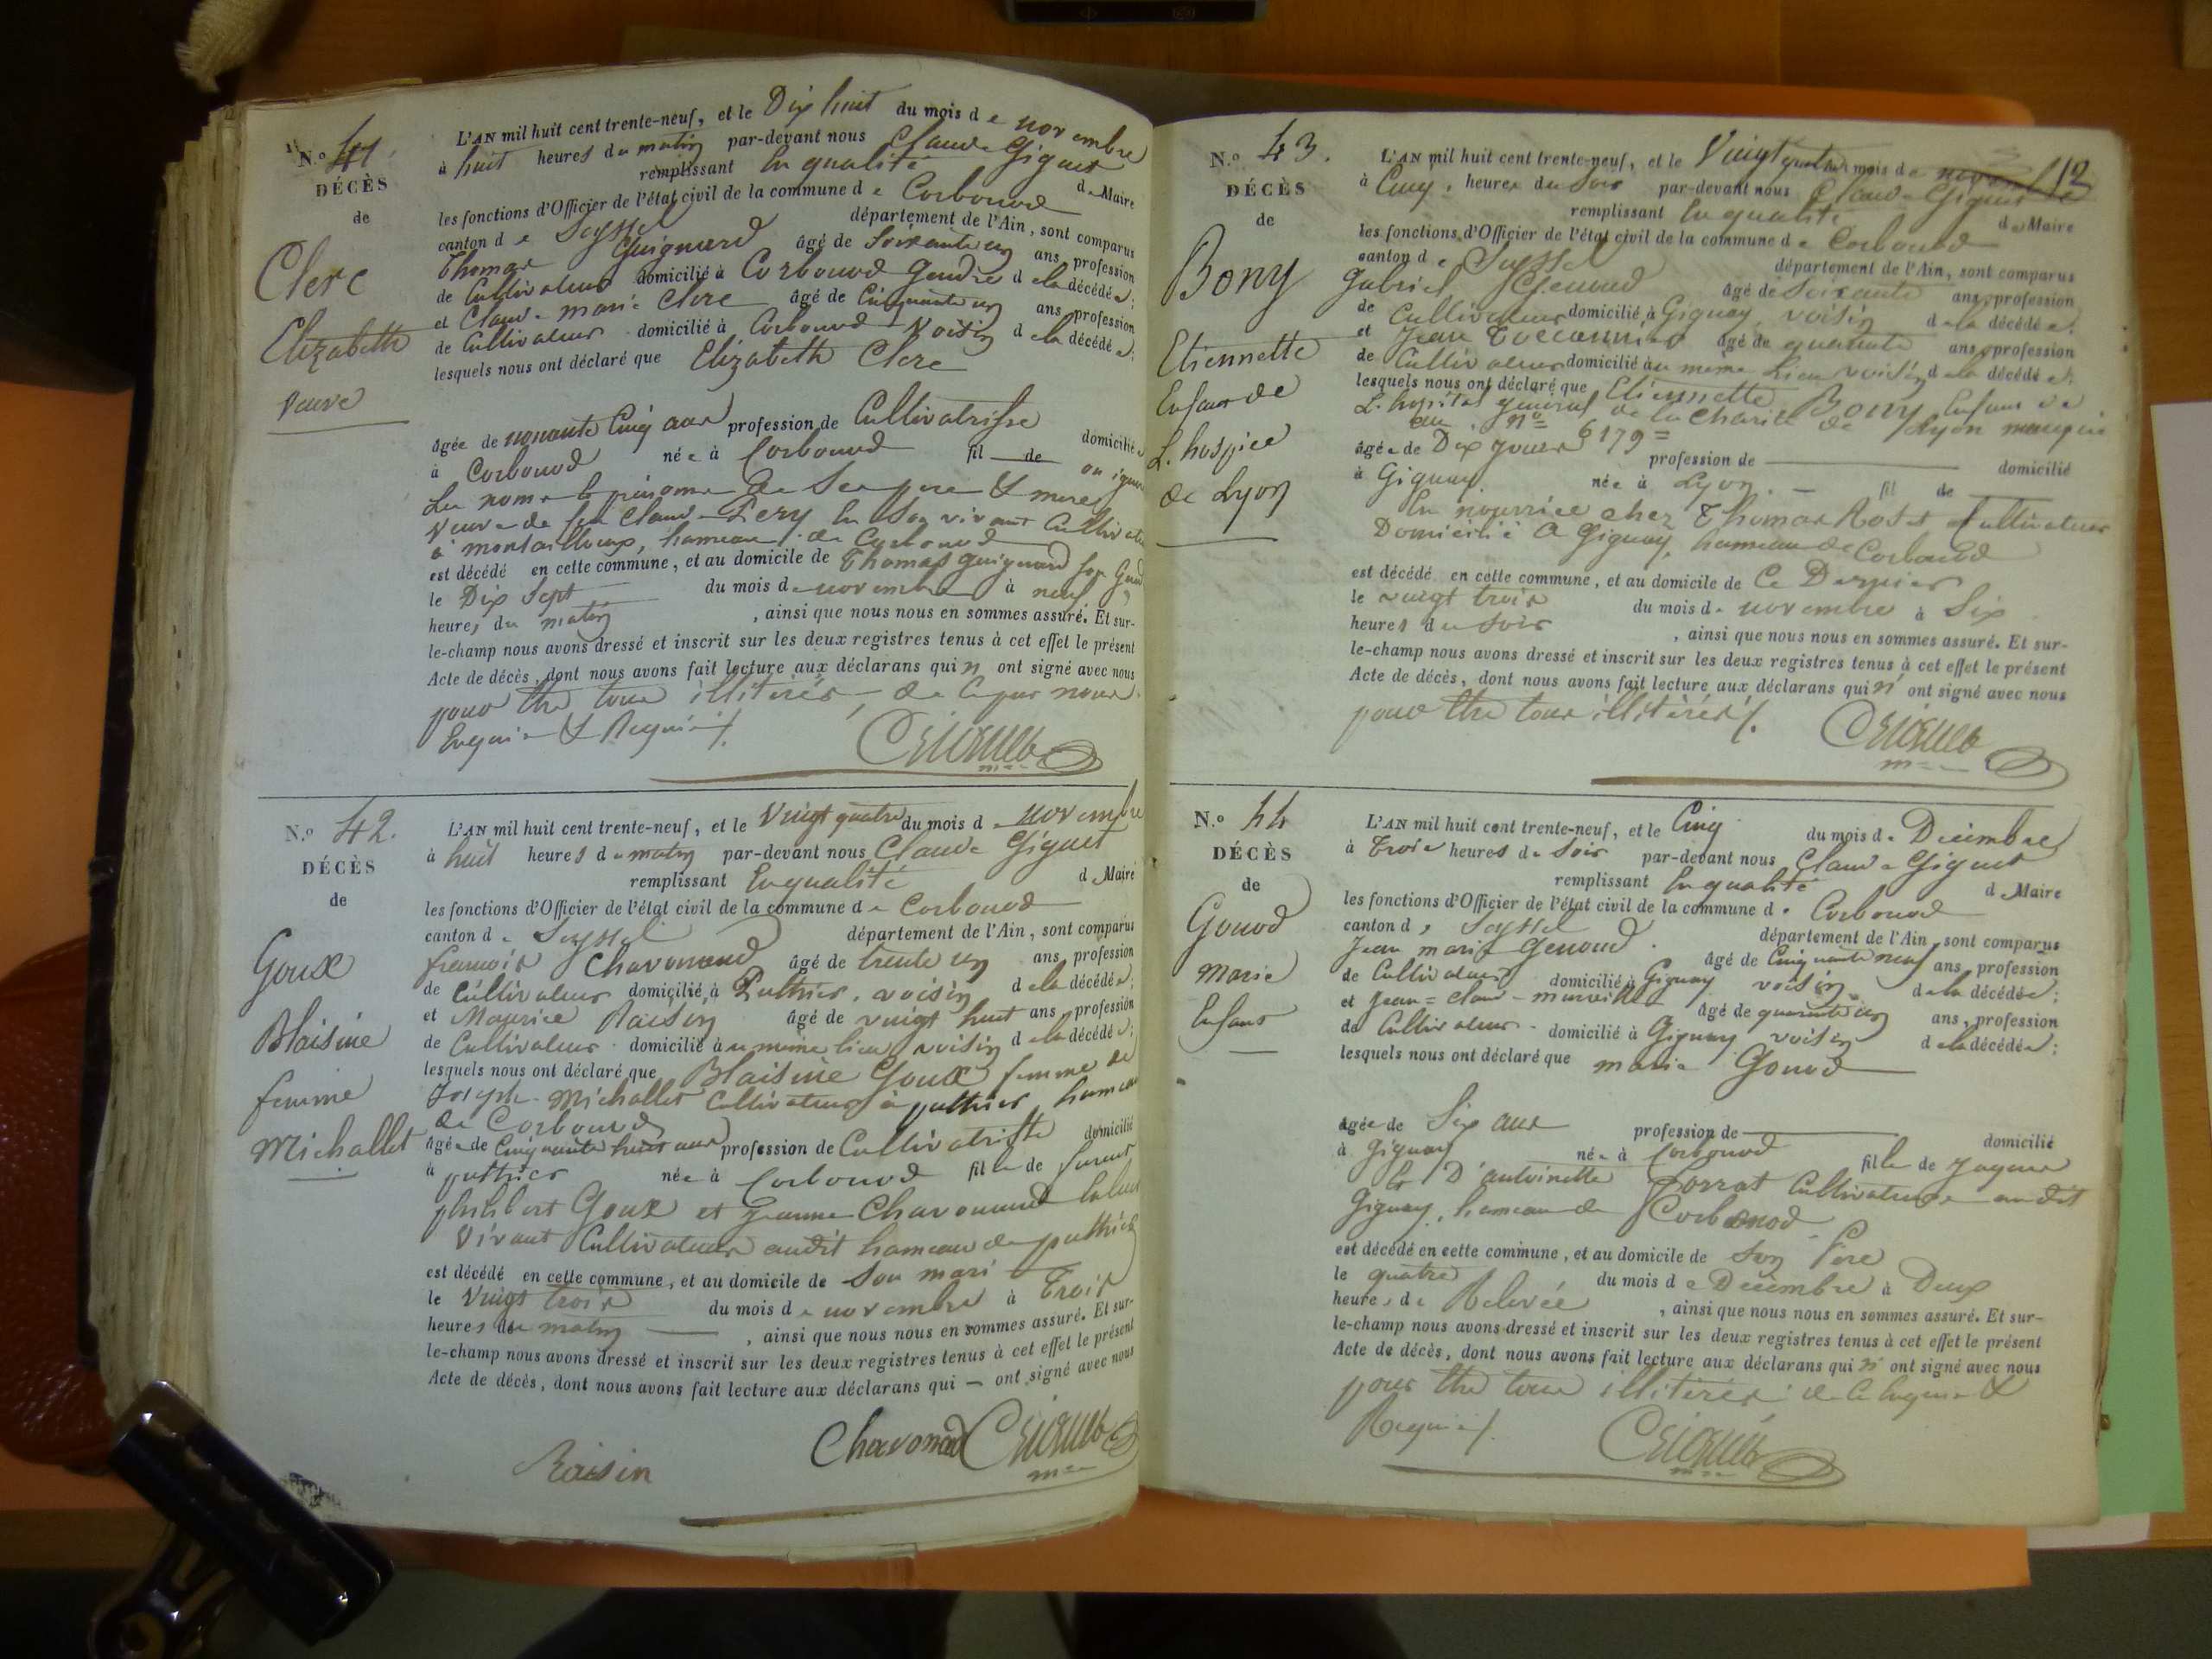 N.o 41.
DÉCÈS
de
Clerc
Elizabeth
veuve
L'AN mil huit cent trente-neuf, et le Dix huit du mois de novembre
à huit heures du matin par-devant nous Claude Giguet
remplissant En qualité de Maire
les fonctions d'Officier de l'état civil de la commune de Corbonod
canton de Seyssel département de l'Ain, sont comparus
Thomas Guignard âgé de Soixante un ans, profession
de Cultivateur domicilié à Corbonod Gendre de la décédée;
et Claude marie Clerc âgé de Cinquante un ans, profession
de Cultivateur domicilié à Corbonod Voisin de la décédée;
lesquels nous ont déclaré que Elizabeth Clerc
âgée de nonante Cinq ans profession de Cultivatrisse domicilié
à Corbonod née à Corbonod fil de on ignore
Les noms & prénoms de Ses père & mere
Veuve de feu Claude Pery En Son vivant Cultivateur
à montailloux, hameau de Corbonod
est décédé en cette commune, et au domicile de Thomas guignard son Gendre
le Dix Sept du mois de novembre à neuf
heures du matin, ainsi que nous nous en sommes assuré. Et sur-
le-champ nous avons dressé et inscrit sur les deux registres tenus à cet effet le présent
Acte de décès, dont nous avons fait lecture aux déclarans qui n' ont signé avec nous
pour être tous illitérés, de ce par nous
Enquis & Requis ./.
CGiguet
N.o 42.
DÉCÈS
de
Goux
Blaisine
femme
Michallet
L'AN mil huit cent trente-neuf, et le Vingt quatre du mois de novembre
à huit heures du matin par-devant nous Claude Giguet
remplissant En qualité de Maire
les fonctions d'Officier de l'état civil de la commune de Corbonod
canton de Seyssel département de l'Ain, sont comparus
francois Chavonand âgé de trente un ans, profession
de Cultivateur domicilié à Puthier, voisin de la décédée;
et Maurice Raisin âgé de vingt huit ans, profession
de Cultivateur domicilié au même lieu voisin de la décédée;
lesquels nous ont déclaré que Blaisine Goux femme de
Joseph Michallet Cultivateur à puthier, hameau
de Corbonod
âgée de Cinquante huit ans profession de Cultivatrisse domicilié
à puthier née à Corbonod fille de fureur
philibert Goux et jeanne Chavonand En leur
Vivant Cultivateurs audit hameau de puthier
est décédé en cette commune, et au domicile de Son mari
le Vingt trois du mois de novembre à Trois
heures du matin, ainsi que nous nous en sommes assuré. Et sur-
le-champ nous avons dressé et inscrit sur les deux registres tenus à cet effet le présent
Acte de décès, dont nous avons fait lecture aux déclarans qui — ont signé avec nous
Chavonad CGiguet
Raisin
N.o 43.
DÉCÈS
de
Bony
Etiennette
Enfant de
L'hospice
de Lyon
L'AN mil huit cent trente-neuf, et le Vingt quatre du mois de novembre
à Cinq heures du Soir par-devant nous Claude Giguet
remplissant En qualité de Maire
les fonctions d'Officier de l'état civil de la commune de Corbonod
canton de Seyssel département de l'Ain, sont comparus
gabriel Genoud âgé de Soixante ans, profession
de Cultivateur domicilié à Gignay, voisin de la décédée;
et Jean âgé de quarante ans, profession
de Cultivateur domicilié au même Lieu voisin de la décédée;
lesquels nous ont déclaré que Etiennette Bony Enfant de
L'hopital général de la Charité de Lyon marquée
au n.o 6179
âgée de Dix jours profession de domicilié
à Gignay née à Lyon. fil de
En nourrice chez Thomas Roset Cultivateur
Domicilié à Gignay, hameau de Corbonod
est décédé en cette commune, et au domicile de Ce Dernier
le vingt trois du mois de novembre à Six
heures du Soir, ainsi que nous nous en sommes assuré. Et sur-
le-champ nous avons dressé et inscrit sur les deux registres tenus à cet effet le présent
Acte de décès, dont nous avons fait lecture aux déclarans qui n' ont signé avec nous
pour être tous illitérés ./.
CGiguet
N.o 44
DÉCÈS
de
Gonod
Marie
Enfant
L'AN mil huit cent trente-neuf, et le Cinq du mois de Décembre
à Trois heures du Soir par-devant nous Claude Giguet
remplissant En qualité de Maire
les fonctions d'Officier de l'état civil de la commune de Corbonod
canton de Seyssel département de l'Ain, sont comparus
Jean marie Genoud âgé de Cinquante neuf ans, profession
de Cultivateur domicilié à Gignay voisin de la décédée;
et Jean-claude âgé de quarante un ans, profession
de Cultivateur domicilié à Gignay voisin de la décédée;
lesquels nous ont déclaré que marie Gonod
âgée de Six ans profession de domicilié
à Gignay née à Corbonod fille de
& D'antoinette Cultivateurs audit
Gignay, hameau de Corbonod
est décédé en cette commune, et au domicile de Son Père
le quatre du mois de Décembre à Deux
heures de Relevée, ainsi que nous nous en sommes assuré. Et sur-
le-champ nous avons dressé et inscrit sur les deux registres tenus à cet effet le présent
Acte de décès, dont nous avons fait lecture aux déclarans qui n' ont signé avec nous
pour être tous illitérés de ce Enquis &
Requis ./.
CGiguet